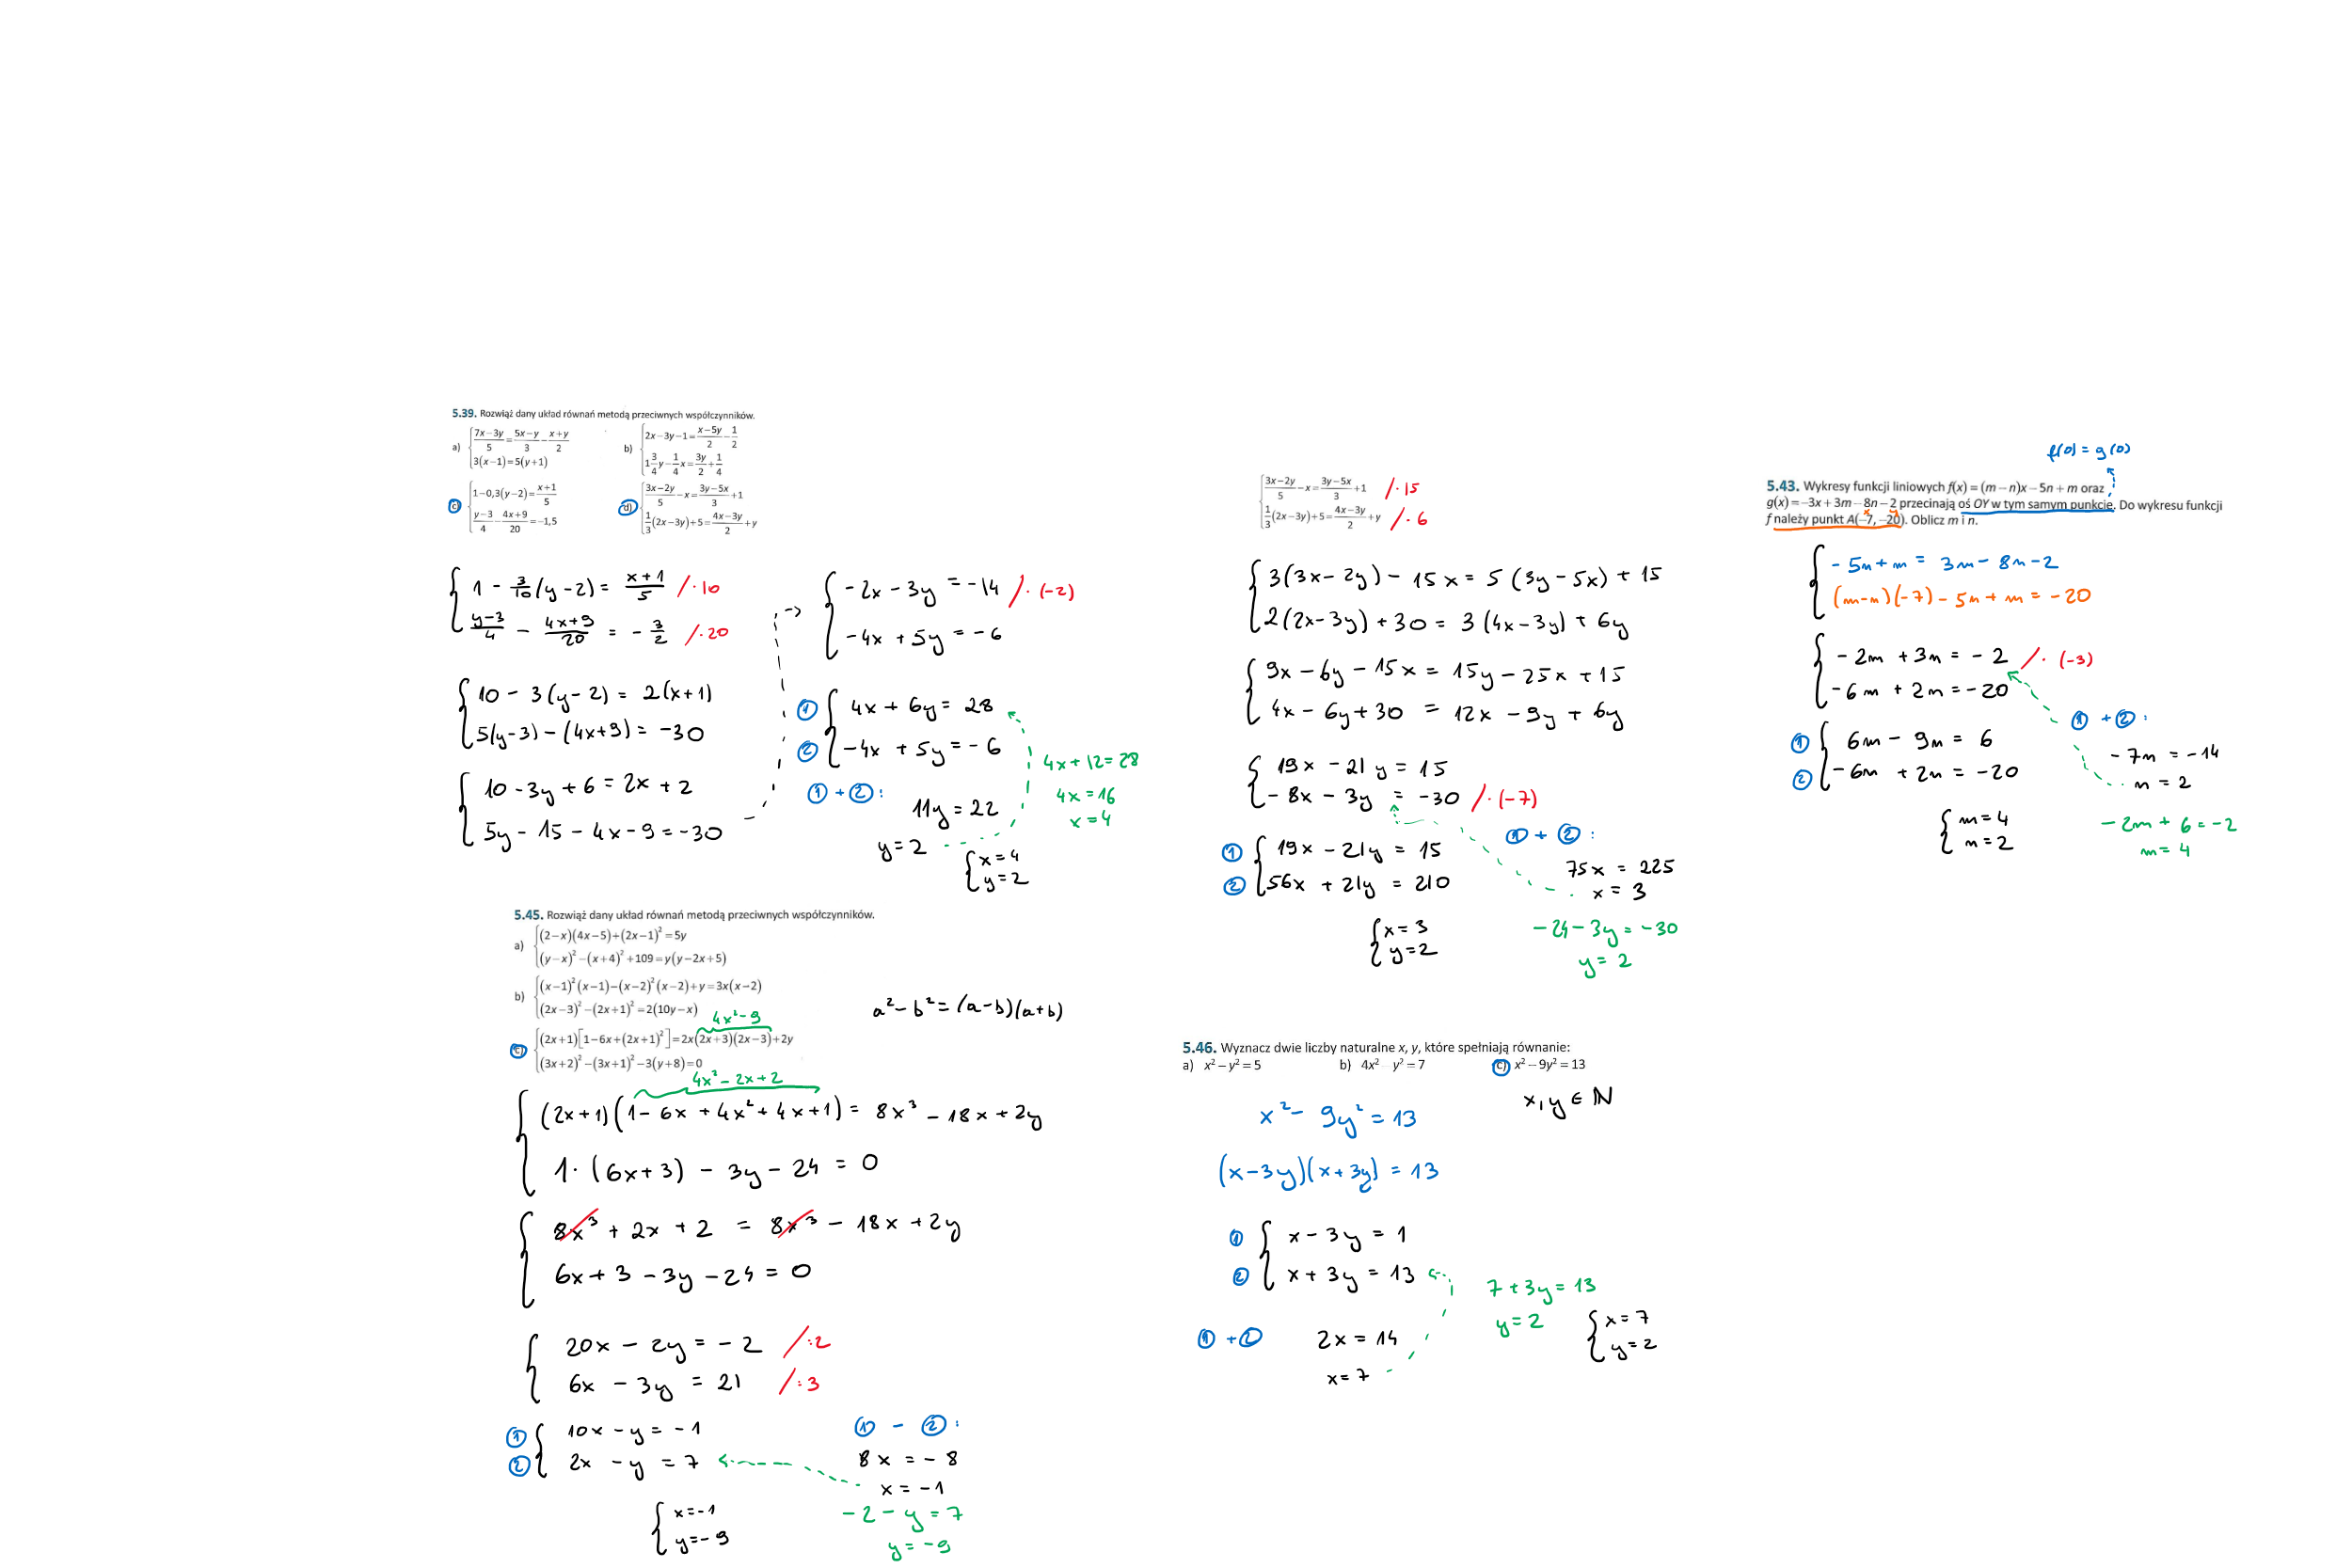 5.39. Rozwiąż dany układ równań metodą przeciwnych współczynników.
a) { (7x−3y)/5 = (5x−y)/3 − (x+y)/2
3(x−1)=5(y+1)
b) { 2x−3y−1 = (x−5y)/2 − 1/2
1 3/4 y − 1/4 x = 3y/2 + 1/4
c) { 1−0,3(y−2) = (x+1)/5
(y−3)/4 − (4x+9)/20 = −1,5
d) { (3x−2y)/5 − x = (3y−5x)/3 + 1
1/3 (2x−3y)+5 = (4x−3y)/2 + y
{ 1 − 3/10 (y−2) = (x+1)/5 /·10
(y−3)/4 − (4x+9)/20 = −3/2 /·20
{ 10 − 3(y−2) = 2(x+1)
5(y−3) − (4x+9) = −30
{ 10 − 3y + 6 = 2x + 2
5y − 15 − 4x − 9 = −30
{ −2x − 3y = −14 /·(−2)
−4x + 5y = −6
① { 4x + 6y = 28
② −4x + 5y = −6
① + ②:
11y = 22
y = 2
4x + 12 = 28
4x = 16
x = 4
{ x = 4
y = 2
{ (3x−2y)/5 − x = (3y−5x)/3 + 1 /·15
1/3 (2x−3y)+5 = (4x−3y)/2 + y /·6
{ 3(3x − 2y) − 15x = 5(3y − 5x) + 15
2(2x − 3y) + 30 = 3(4x − 3y) + 6y
{ 9x − 6y − 15x = 15y − 25x + 15
4x − 6y + 30 = 12x − 9y + 6y
{ 19x − 21y = 15
−8x − 3y = −30 /·(−7)
① { 19x − 21y = 15
② 56x + 21y = 210
① + ②:
75x = 225
x = 3
−24 − 3y = −30
y = 2
{ x = 3
y = 2
f(0) = g(0)
5.43. Wykresy funkcji liniowych f(x) = (m − n)x − 5n + m oraz
g(x) = −3x + 3m − 8n − 2 przecinają oś OY w tym samym punkcie. Do wykresu funkcji
x y
f należy punkt A(−7, −20). Oblicz m i n.
{ −5n + m = 3m − 8n − 2
(m−n)(−7) − 5n + m = −20
{ −2m + 3n = −2 /·(−3)
−6m + 2n = −20
① { 6m − 9n = 6
② −6m + 2n = −20
① + ②:
−7n = −14
n = 2
−2m + 6 = −2
m = 4
{ m = 4
n = 2
5.45. Rozwiąż dany układ równań metodą przeciwnych współczynników.
a) { (2−x)(4x−5)+(2x−1)² = 5y
(y−x)² − (x+4)² + 109 = y(y−2x+5)
b) { (x−1)²(x−1)−(x−2)²(x−2)+y = 3x(x−2)
(2x−3)² − (2x+1)² = 2(10y−x)
4x² − 9
c) { (2x+1)[1−6x+(2x+1)²] = 2x(2x+3)(2x−3)+2y
(3x+2)² − (3x+1)² − 3(y+8) = 0
a² − b² = (a−b)(a+b)
4x² − 2x + 2
{ (2x+1)(1 − 6x + 4x² + 4x + 1) = 8x³ − 18x + 2y
1·(6x+3) − 3y − 24 = 0
{ 8x³ + 2x + 2 = 8x³ − 18x + 2y
6x + 3 − 3y − 24 = 0
{ 20x − 2y = −2 /:2
6x − 3y = 21 /:3
① { 10x − y = −1
② 2x − y = 7
① − ②:
8x = −8
x = −1
−2 − y = 7
y = −9
{ x = −1
y = −9
5.46. Wyznacz dwie liczby naturalne x, y, które spełniają równanie:
a) x² − y² = 5 b) 4x² y² = 7 c) x² − 9y² = 13
x, y ∈ ℕ
x² − 9y² = 13
(x−3y)(x+3y) = 13
① { x − 3y = 1
② x + 3y = 13
① + ②
2x = 14
x = 7
7 + 3y = 13
y = 2
{ x = 7
y = 2